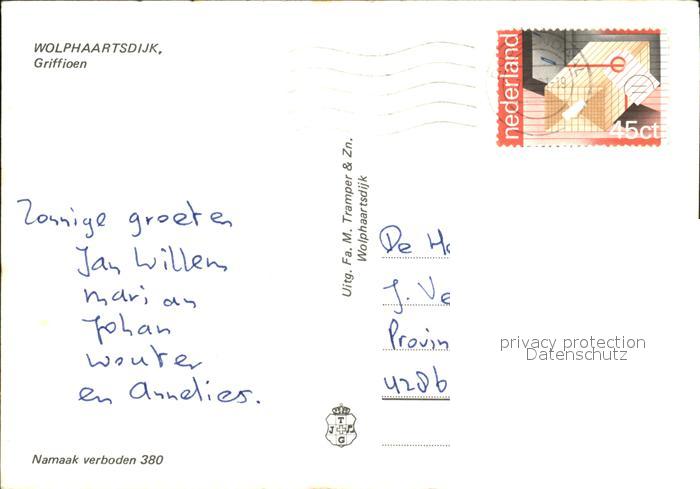 WOLPHAARTSDIJK,
Griffioen
nederland
45ct
Zonnige groeten
Jan Willem
Marian
Johan
Wouter
en Annelies.
Uitg. Fa. M. Tramper & Zn.
Wolphaartsdijk
De
J. Ve
Provin
4286
privacy protection
Datenschutz
T
J
G
Namaak verboden 380